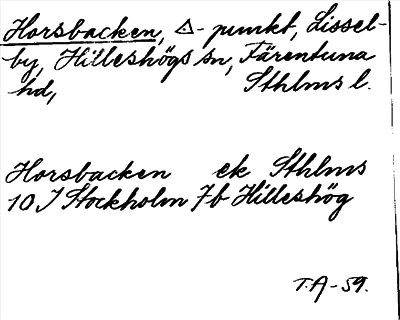 Horsbacken, △- punkt, Lissel-
by, Hilleshögs sn, Färentuna
hd, Sthlms l.
Horsbacken ek Sthlms
10 I Stockholm 7b Hilleshög
T.A-59.